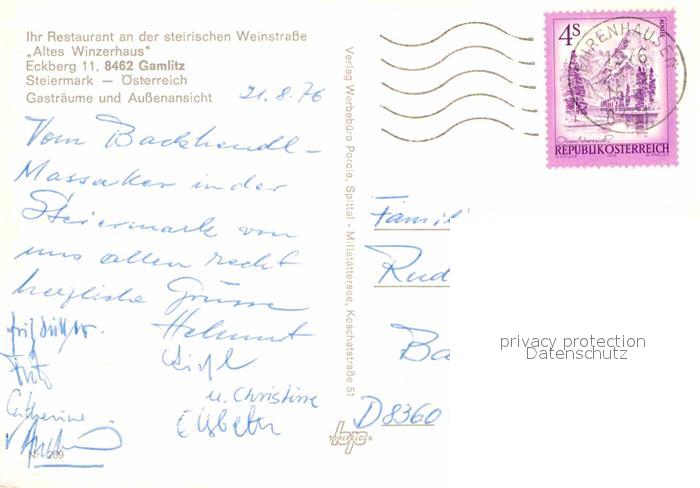 Ihr Restaurant an der steirischen Weinstraße
„Altes Winzerhaus"
Eckberg 11, 8462 Gamlitz
Steiermark — Österreich
Gasträume und Außenansicht
21.8.76
Vom Backhendl-
Massaker in der
Steiermark von
uns allen recht
herzliche Grüsse
Helmut
Liesl
u. Christine
Elisabeth
Fritz
Catherine
Nr. 209
Verlag Werbebüro Porcia, Spittal - Millstättersee, Koschatstraße 51
4S
REPUBLIK ÖSTERREICH
EHRENHAUSEN
Famil
Rud
Ba
D8360
privacy protection
Datenschutz